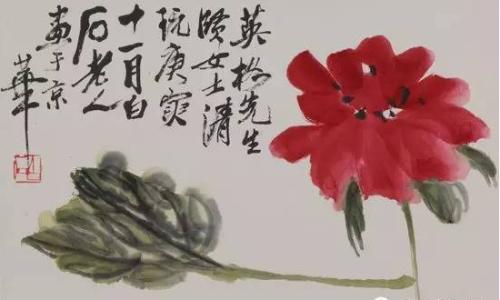 英先生
女士清
玩庚寅
十一月白
石老人
畫于京
華